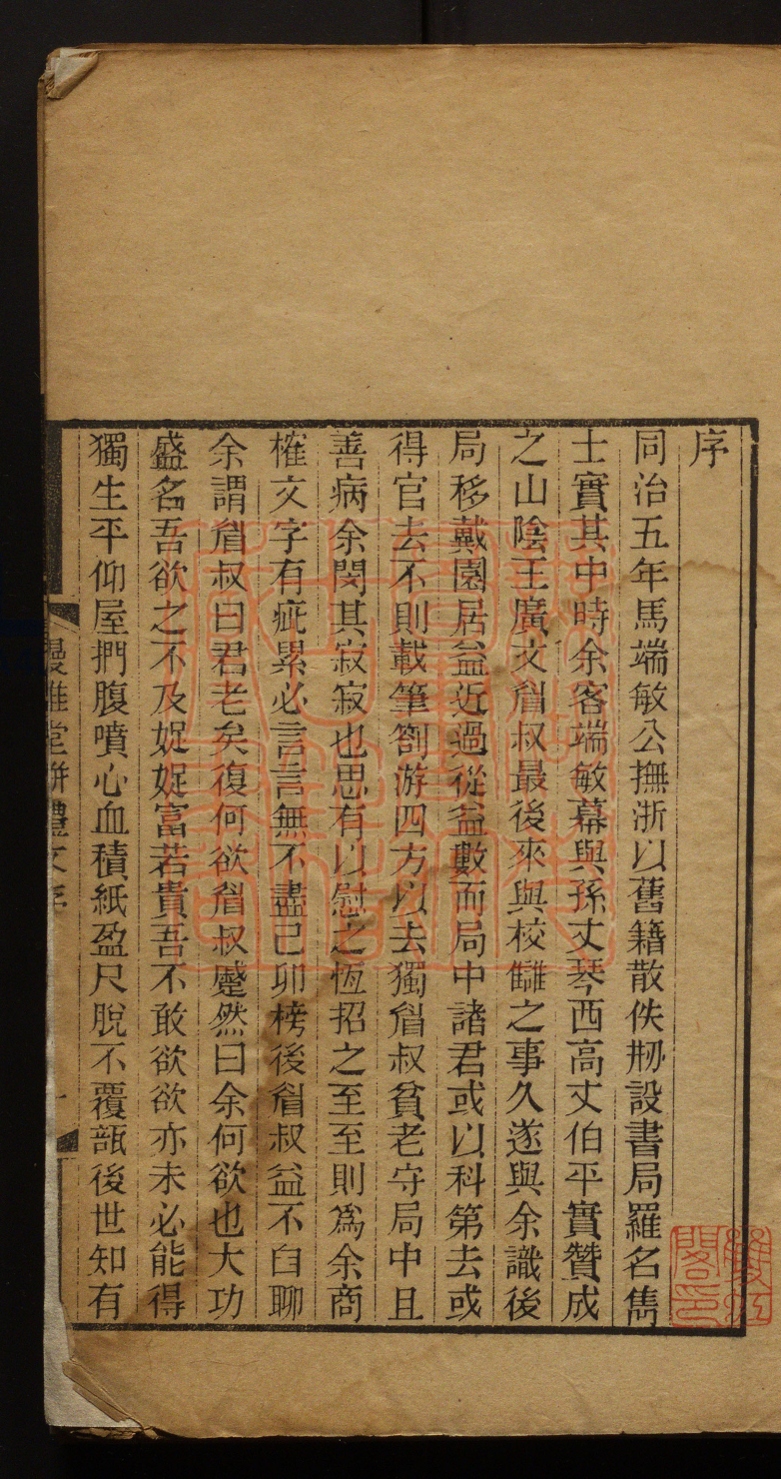 序
同治五年馬端敏公撫浙以舊籍散佚剙設書局羅名雋
士實其中時余客端敏幕與孫丈琴西高丈伯平實贊成
之山陰王廣文眉叔最後來與校讎之事久遂與余識後
局移戴園居益近過從益數而局中諸君或以科第去或
得官去不則載筆劄游四方以去獨眉叔貧老守局中且
善病余閔其寂寂也思有以慰之恆招之至至則為余商
榷文字有疵累必言言無不盡己卯榜後眉叔益不自聊
余謂眉叔曰君老矣復何欲眉叔蹙然曰余何欲也大功
盛名吾欲之不及娖娖富若貴吾不敢欲欲亦未必能得
獨生平仰屋捫腹噴心血積紙盈尺脫不覆瓿後世知有
堂駢體文存
一